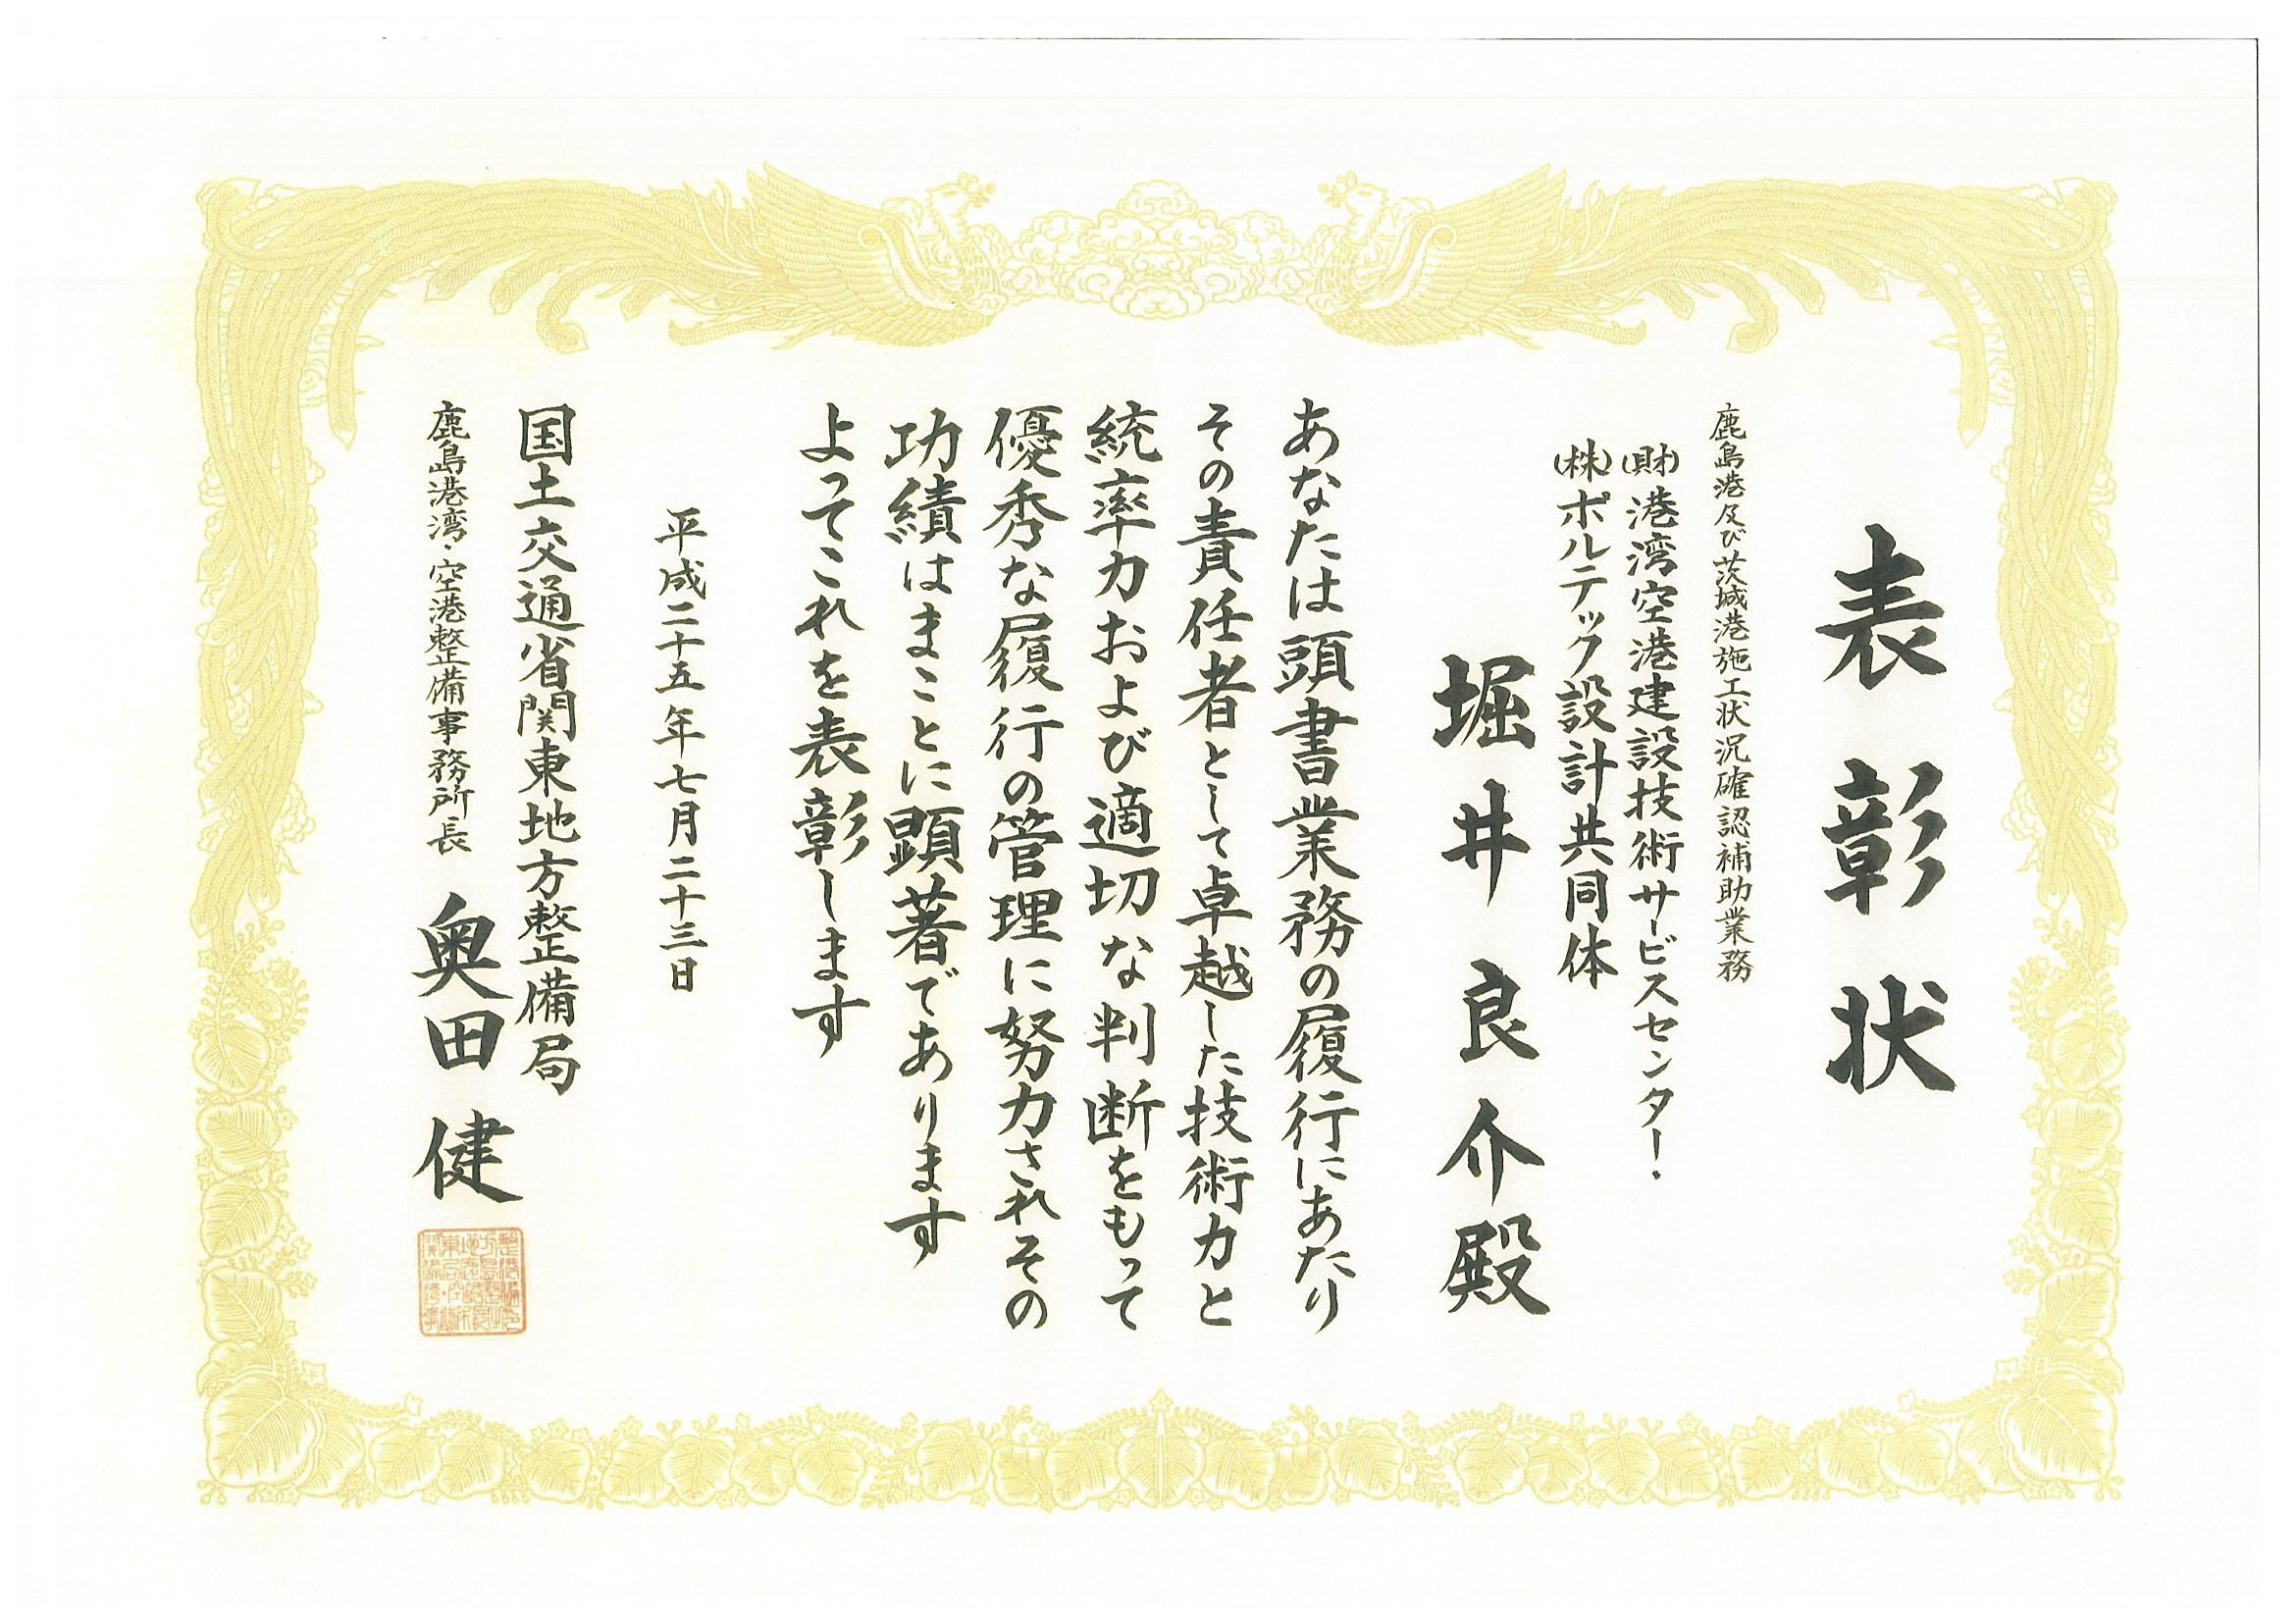 表彰状
鹿島港及び茨城港施工状況確認補助業務
(財)港湾空港建設技術サービスセンター・
(株)ポルテック設計共同体
堀井良介殿
あなたは頭書業務の履行にあたり
その責任者として卓越した技術力と
統率力および適切な判断をもって
優秀な履行の管理に努力されその
功績はまことに顕著であります
よってこれを表彰します
平成二十五年七月二十三日
国土交通省関東地方整備局
鹿島港湾・空港整備事務所長 奥田健